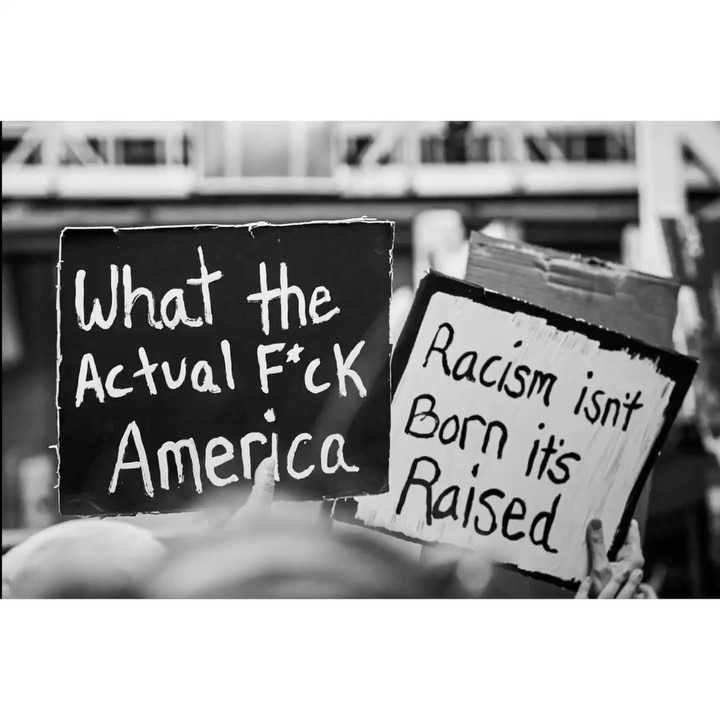 What the
Actual F*cK
America
Racism isn't
Born it's
Raised